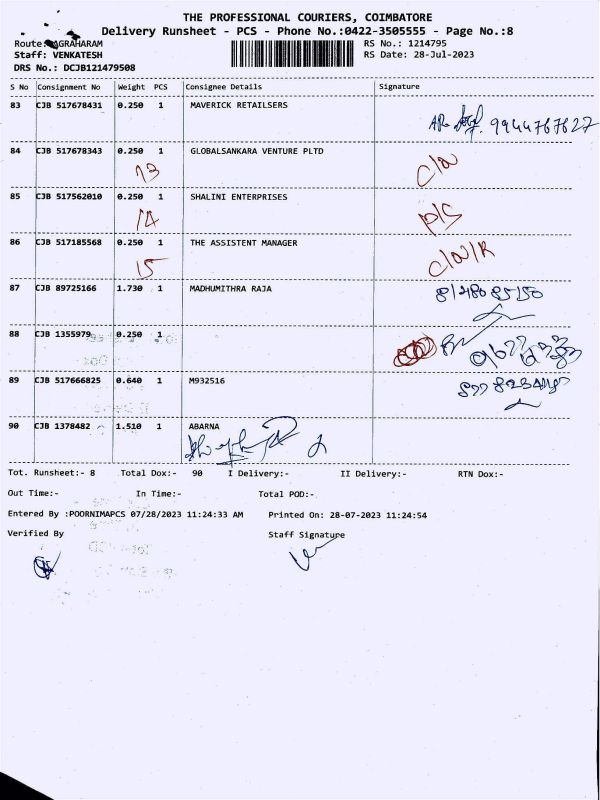 THE PROFESSIONAL COURIERS, COIMBATORE
Delivery Runsheet - PCS - Phone No.:0422-3505555 - Page No.:8
Route: AGRAHARAM RS No.: 1214795
Staff: VENKATESH RS Date: 28-Jul-2023
DRS No.: DCJB121479508
S No Consignment No Weight PCS Consignee Details Signature
83 CJB 517678431 0.250 1 MAVERICK RETAILSERS
9944767627
84 CJB 517678343 0.250 1 GLOBALSANKARA VENTURE PLTD
13
85 CJB 517562010 0.250 1 SHALINI ENTERPRISES
14 P/S
86 CJB 517185568 0.250 1 THE ASSISTENT MANAGER
15
87 CJB 89725166 1.730 1 MADHUMITHRA RAJA
8148085150
88 CJB 1355979 0.250 1
89 CJB 517666825 0.640 1 M932516
90 CJB 1378482 1.510 1 ABARNA
Tot. Runsheet:- 8 Total Dox:- 90 I Delivery:- II Delivery:- RTN Dox:-
Out Time:- In Time:- Total POD:-
Entered By :POORNIMAPCS 07/28/2023 11:24:33 AM Printed On: 28-07-2023 11:24:54
Verified By Staff Signature